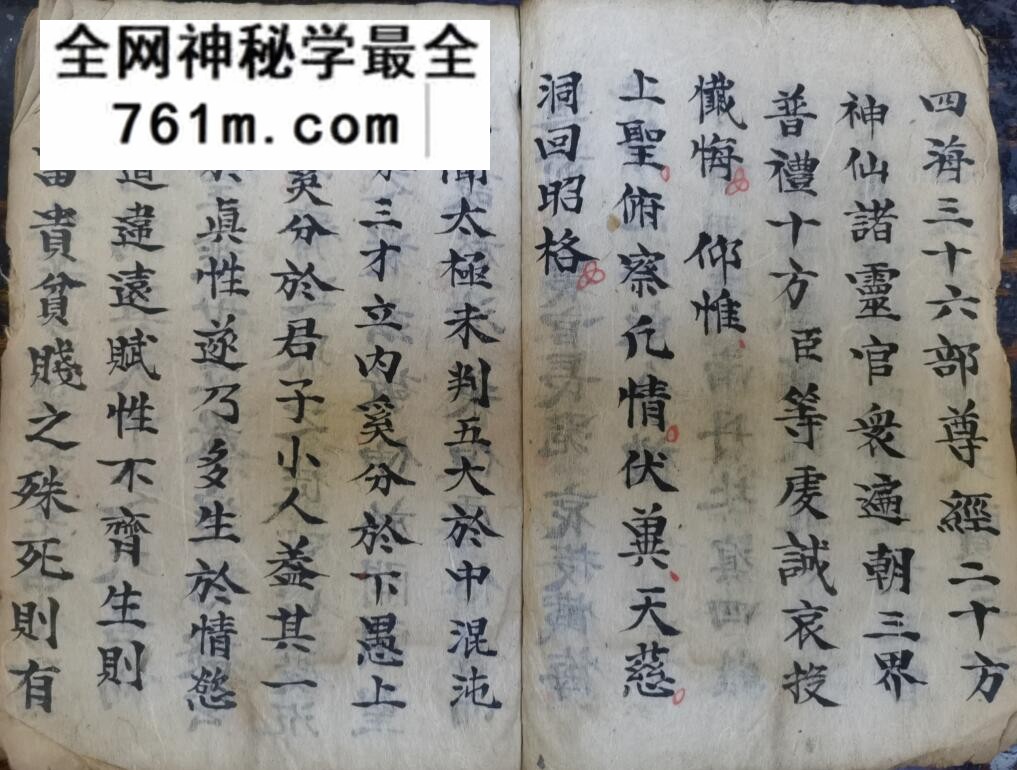 全网神秘学最全
761m.com
四海三十六部尊經二十方
神仙諸靈官衆遍朝三界
普禮十方臣等虔誠哀投
懺悔 仰惟
上聖俯察凡情伏兾天慈
洞回昭格
聞太極未判五大於中混沌
三才立内奚分於下愚上
奚分於君子小人葢其一
眞性逆乃多生於情慾
道違遠賦性不齊生則
富貴貧賤之殊死則有